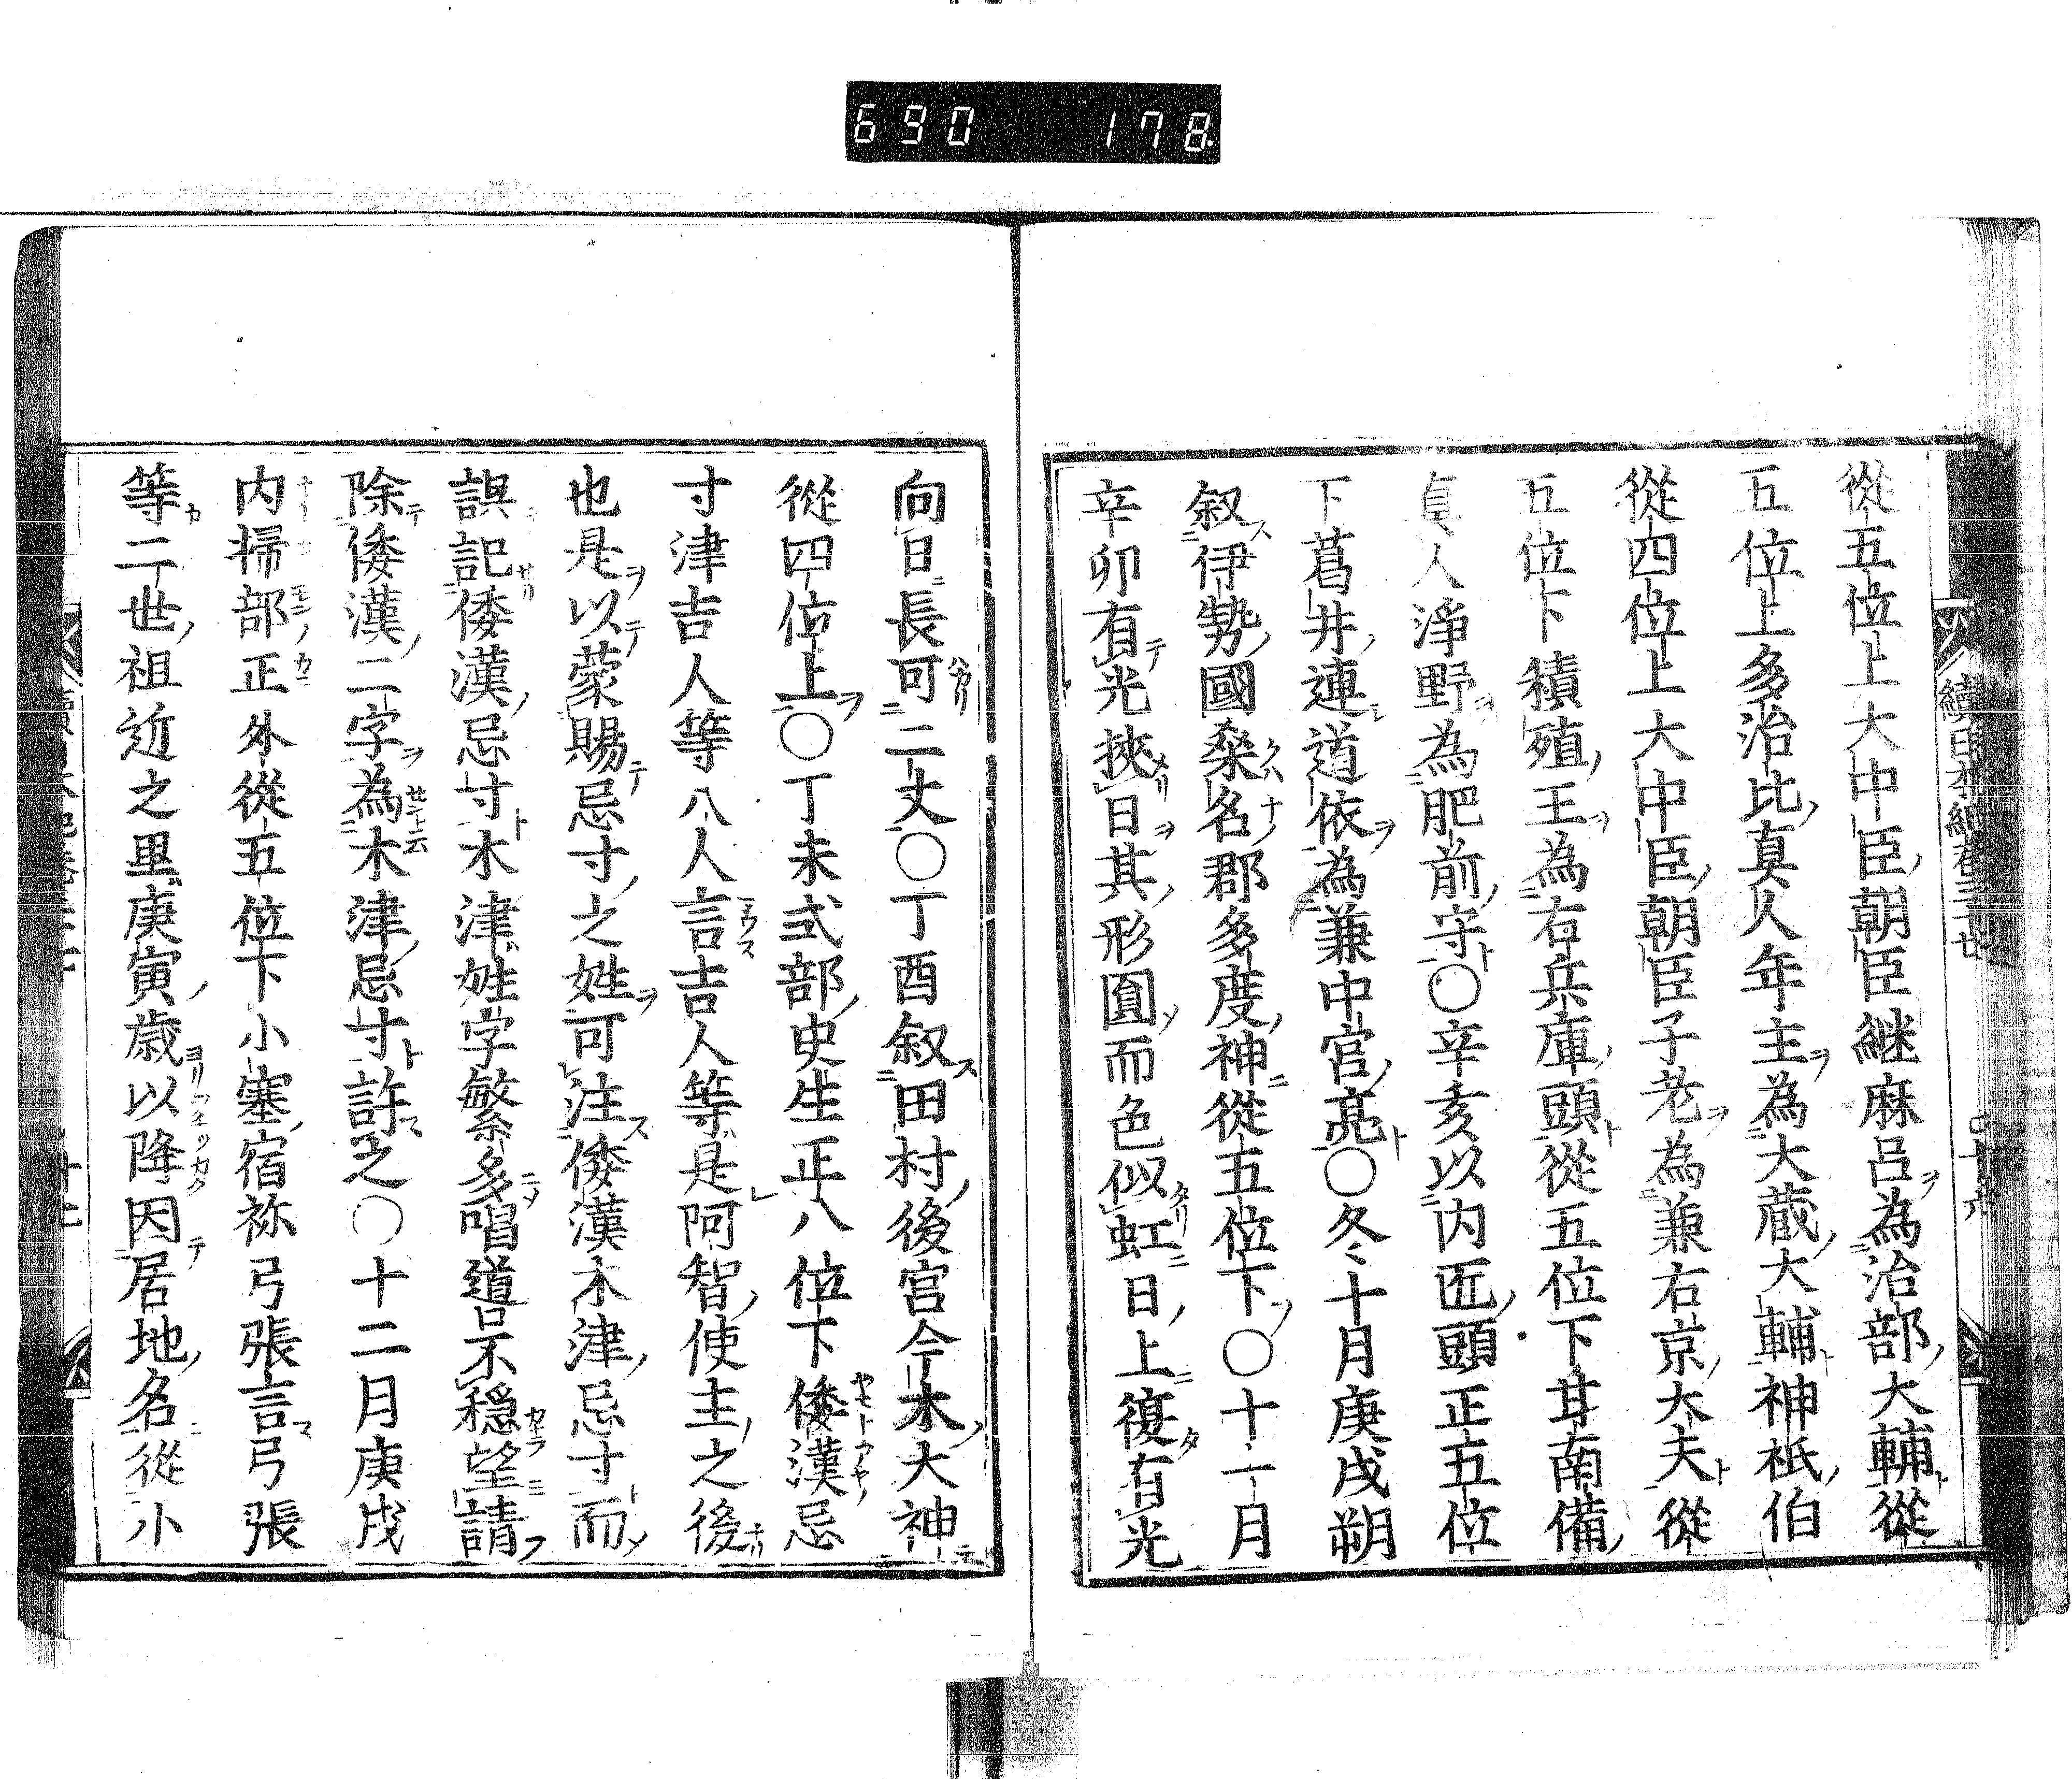 690 178
從五位上大中臣朝臣継麻呂為治部大輔從
五位上多治比真人年主為大蔵大輔神祇伯
從四位上大中臣朝臣子老為兼右京大夫從
五位下積殖王為右兵庫頭從五位下甘南備
真人淨野為肥前守○辛亥以内匠頭正五位
下葛井連道依為兼中宮亮○冬十月庚戌朔
叙伊勢國桑名郡多度神從五位下○十一月
辛卯有光挾日其形圓而色似虹日上復有光
向日長可二丈○丁酉叙田村後宮今木大神
從四位上○丁未式部史生正八位下倭漢忌
寸津吉人等八人言吉人等是阿智使主之後
也是以蒙賜忌寸之姓可注倭漢木津忌寸而
誤記倭漢忌寸木津姓字繁多唱道不穏望請
除倭漢二字為木津忌寸許之○十二月庚戌
内掃部正外從五位下小塞宿祢弓張言弓張
等二世祖近之里庚寅歳以降因居地名從小